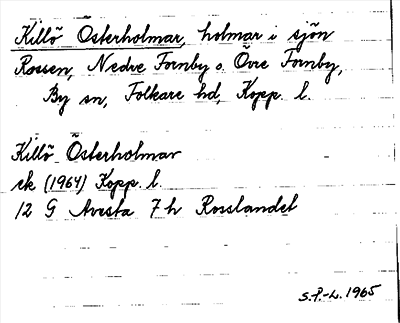 Killö Österholmar, holmar i sjön
Rossen, Nedre Fornby o. Övre Fornby,
By sn, Folkare hd, Kopp. l.
Killö Österholmar
ek (1964) Kopp. l.
12 G Avesta 7 h Rosslandet
S.P.-L. 1965